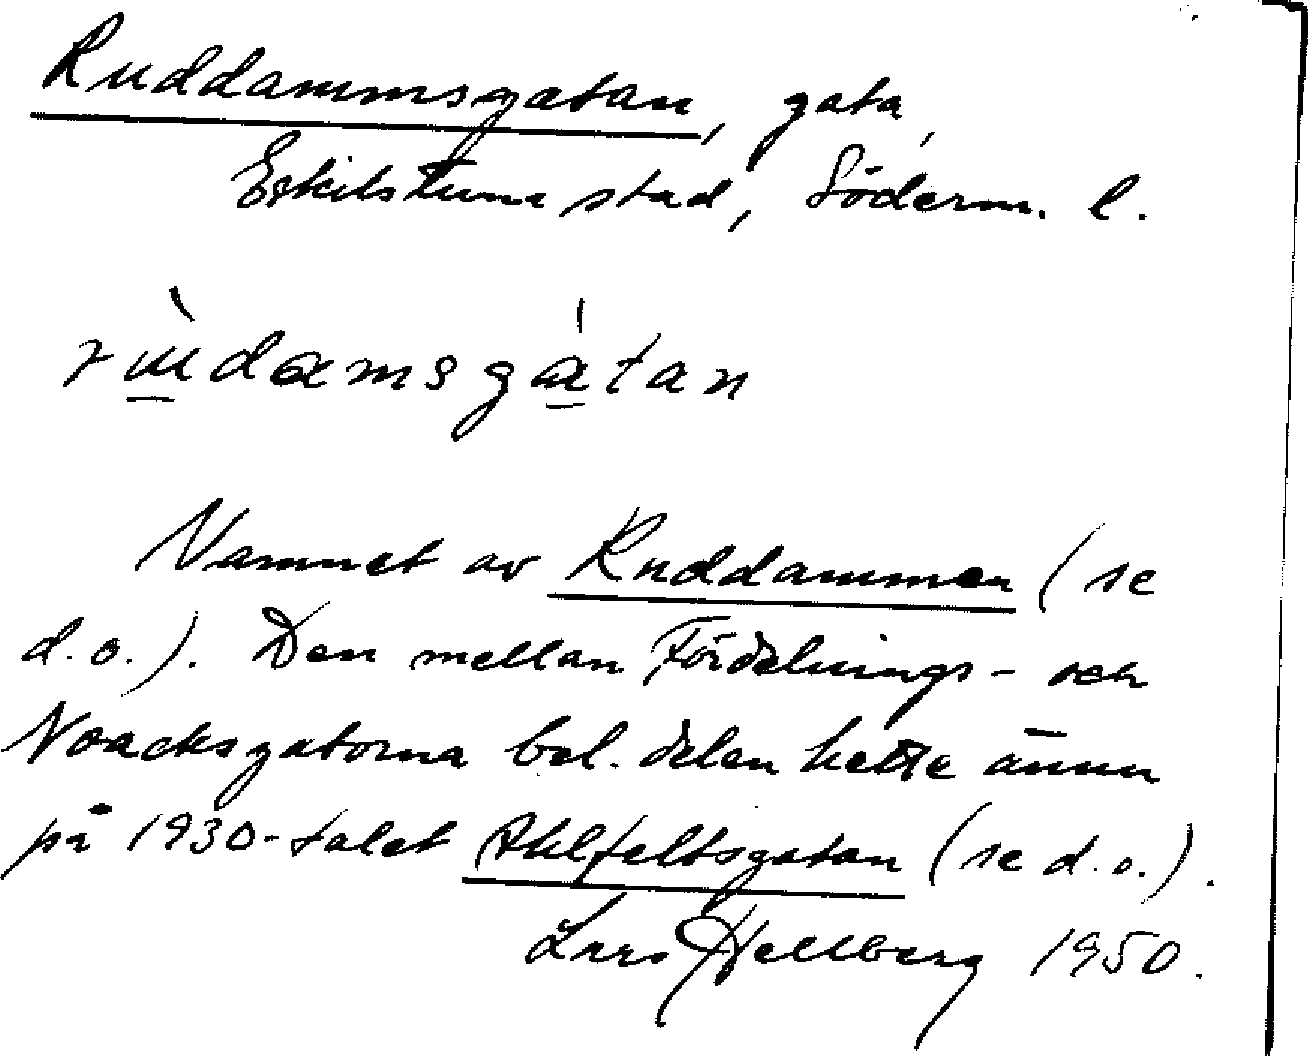 Ruddammsgatan, gata,
Eskilstuna stad, Söderm. l.
rùdamsgátan
Namnet av Ruddammen (se
d.o.). Den mellan Fördelnings- och
Noacksgatorna bel. delen hette ännu
på 1930-talet Ahlfeltsgatan (se d.o.).
Lars Hellberg 1950.